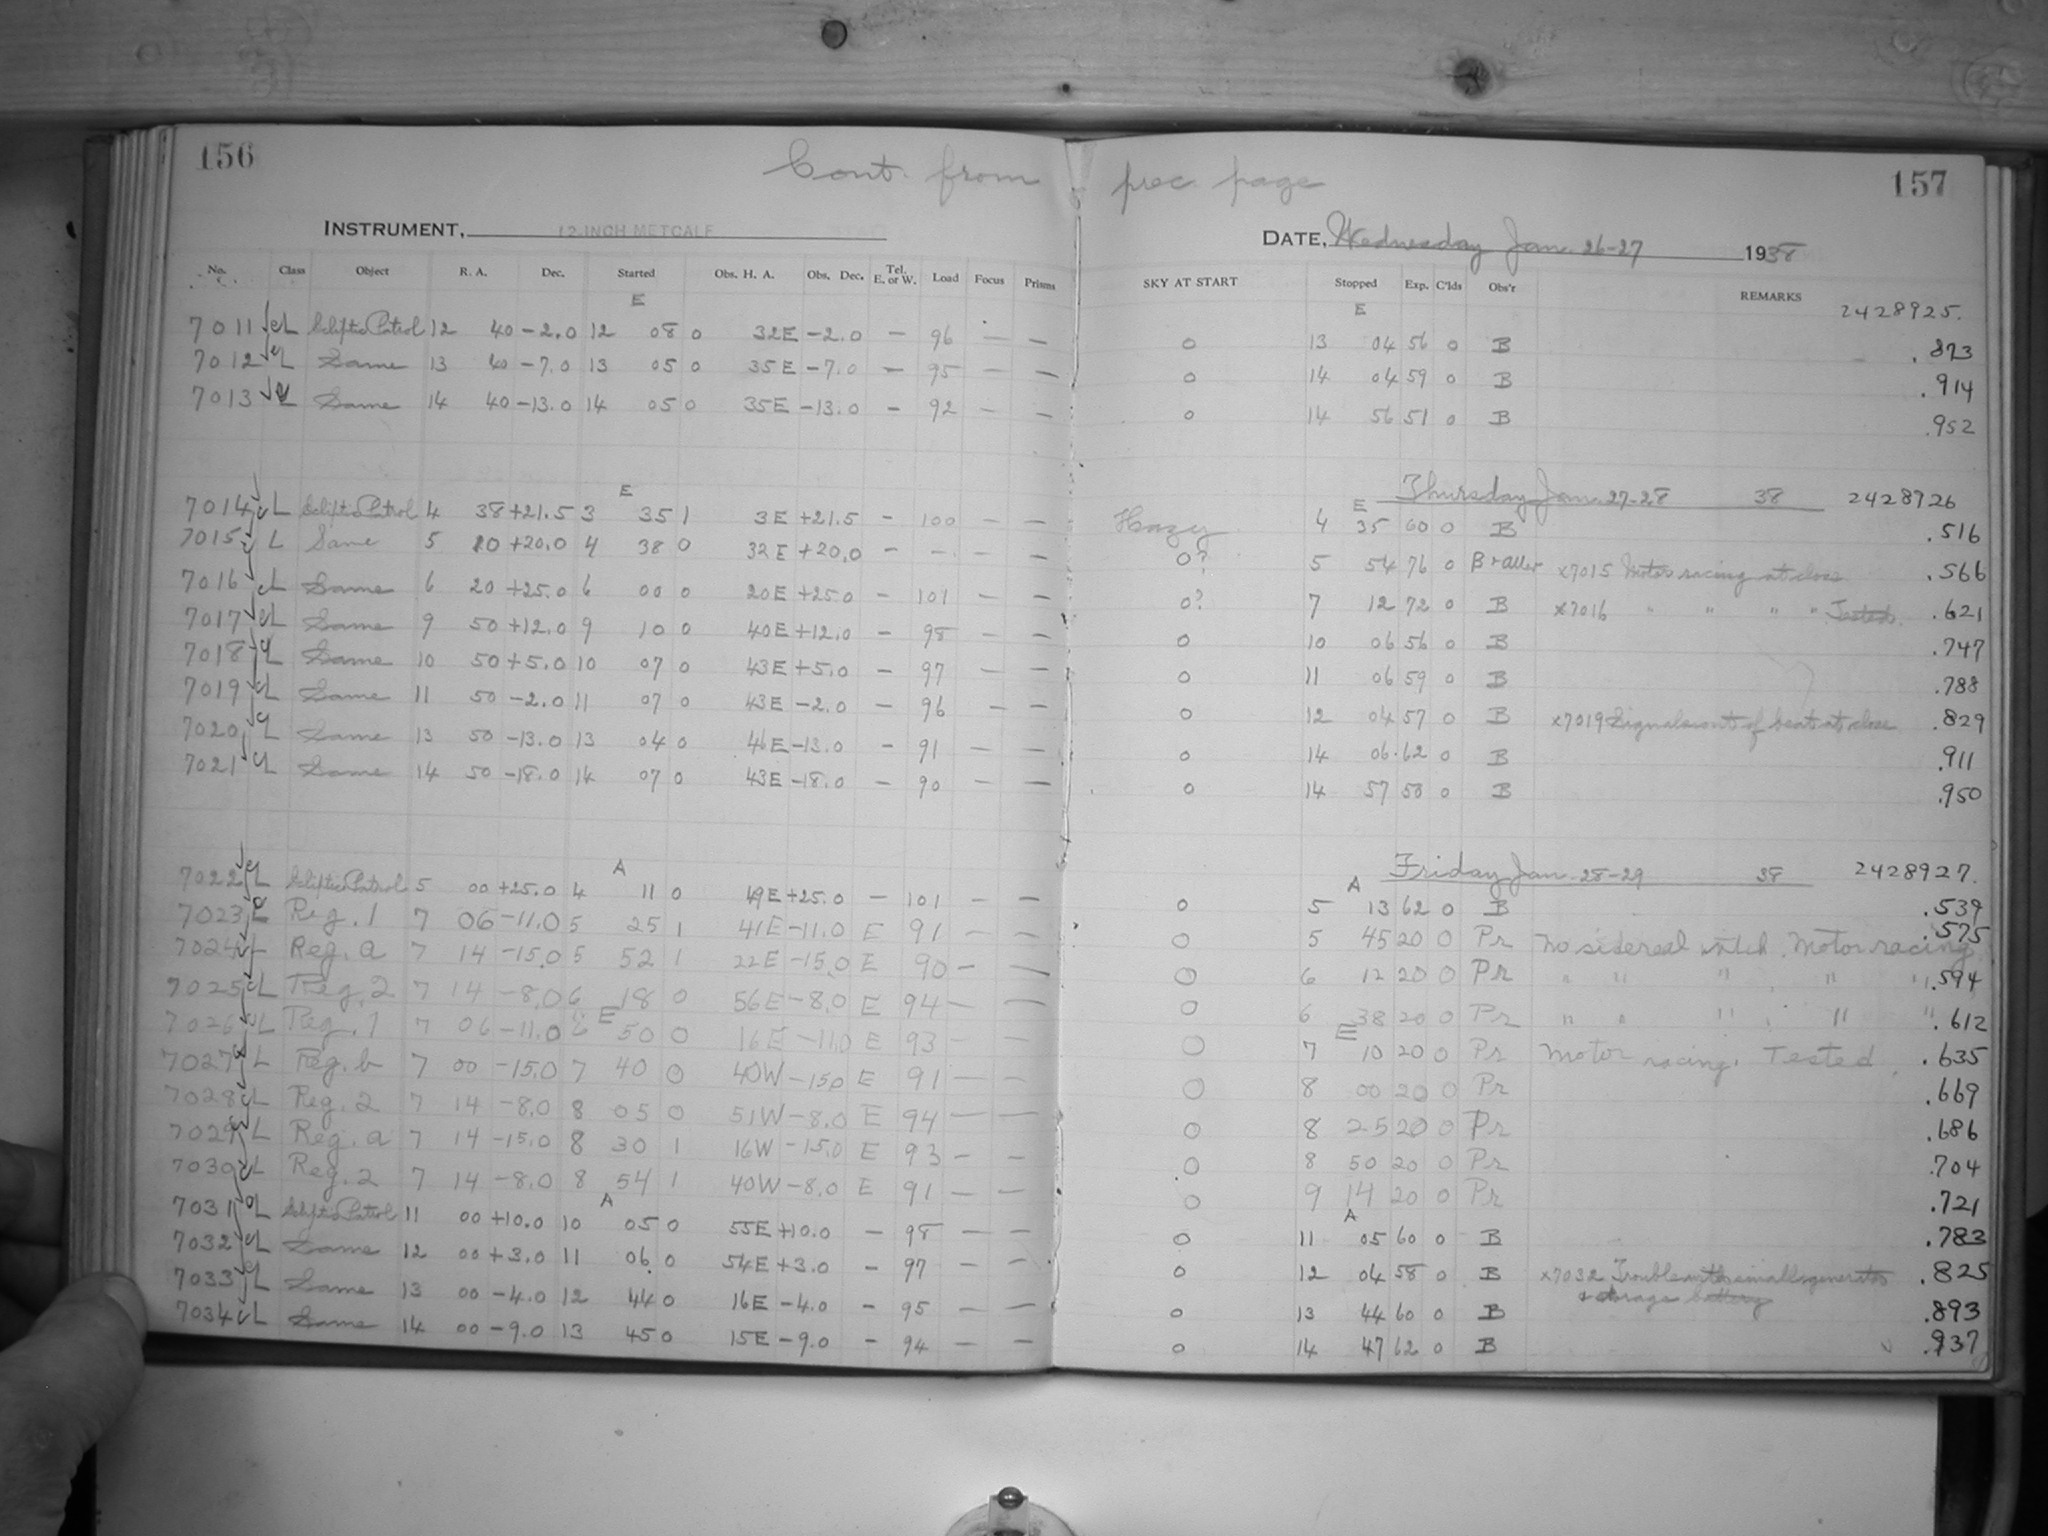 156
Cont. from prec. page
157
INSTRUMENT, 12-INCH METCALF
DATE, Wednesday Jan. 26-27 1938
No. Class Object R. A. Dec. Started Obs. H. A. Obs. Dec. Tel. E. or W. Load Focus Prisms SKY AT START Stopped Exp. C'lds Obs'r REMARKS
E E 2428925.
7011 L Ecliptic Patrol 12 40 -2.0 12 08 0 32E -2.0 — 96 — — 0 13 04 56 0 B .873
7012 L Same 13 40 -7.0 13 05 0 35E -7.0 — 95 — — 0 14 04 59 0 B .914
7013 L Same 14 40 -13.0 14 05 0 35E -13.0 - 92 — — 0 14 56 51 0 B .952
Thursday Jan. 27-28 38 2428926
E E
7014 L Ecliptic Patrol 4 38 +21.5 3 35 1 3E +21.5 - 100 — — Hazy 4 35 60 0 B .516
7015 L Same 5 20 +20.0 4 38 0 32E +20.0 - — — — 0? 5 54 76 0 B x7015 Motor racing at close .566
7016 L Same 6 20 +25.0 6 00 0 20E +25.0 - 101 — — 0? 7 12 72 0 B x7016 " " " " Tested. .621
7017 L Same 9 50 +12.0 9 10 0 40E +12.0 - 98 — — 0 10 06 56 0 B .747
7018 L Same 10 50 +5.0 10 07 0 43E +5.0 - 97 — — 0 11 06 59 0 B .788
7019 L Same 11 50 -2.0 11 07 0 43E -2.0 - 96 — — 0 12 04 57 0 B x7019 Signals out of beat at close .829
7020 L Same 13 50 -13.0 13 04 0 46E -13.0 - 91 — — 0 14 06 62 0 B .911
7021 L Same 14 50 -18.0 14 07 0 43E -18.0 - 90 — — 0 14 57 50 0 B .950
Friday Jan. 28-29 38 2428927.
A A
7022 L Ecliptic Patrol 5 00 +25.0 4 11 0 49E +25.0 — 101 — — 0 5 13 62 0 B .539
7023 L Reg. 1 7 06 -11.0 5 25 1 41E -11.0 E 91 — — 0 5 45 20 0 Pr No sidereal watch. Motor racing .575
7024 L Reg. a 7 14 -15.0 5 52 1 22E -15.0 E 90 — — 0 6 12 20 0 Pr " " " " " .594
7025 L Reg. 2 7 14 -8.0 6 18 0 56E -8.0 E 94 — — 0 6 38 20 0 Pr " " " " " .612
E E
7026 L Reg. 1 7 06 -11.0 6 50 0 16E -11.0 E 93 — — 0 7 10 20 0 Pr Motor racing. Tested. .635
7027 L Reg. b 7 00 -15.0 7 40 0 40W -15.0 E 91 — — 0 8 00 20 0 Pr .669
7028 L Reg. 2 7 14 -8.0 8 05 0 51W -8.0 E 94 — — 0 8 25 20 0 Pr .686
7029 L Reg. a 7 14 -15.0 8 30 1 16W -15.0 E 93 — — 0 8 50 20 0 Pr .704
7030 L Reg. 2 7 14 -8.0 8 54 1 40W -8.0 E 91 — — 0 9 14 20 0 Pr .721
A A
7031 L Ecliptic Patrol 11 00 +10.0 10 05 0 55E +10.0 - 98 — — 0 11 05 60 0 B .783
7032 L Same 12 00 +3.0 11 06 0 54E +3.0 - 97 — — 0 12 04 58 0 B x7032 Trouble with small generator .825
& storage battery
7033 L Same 13 00 -4.0 12 44 0 16E -4.0 - 95 — — 0 13 44 60 0 B .893
7034 L Same 14 00 -9.0 13 45 0 15E -9.0 - 94 — — 0 14 47 62 0 B .937